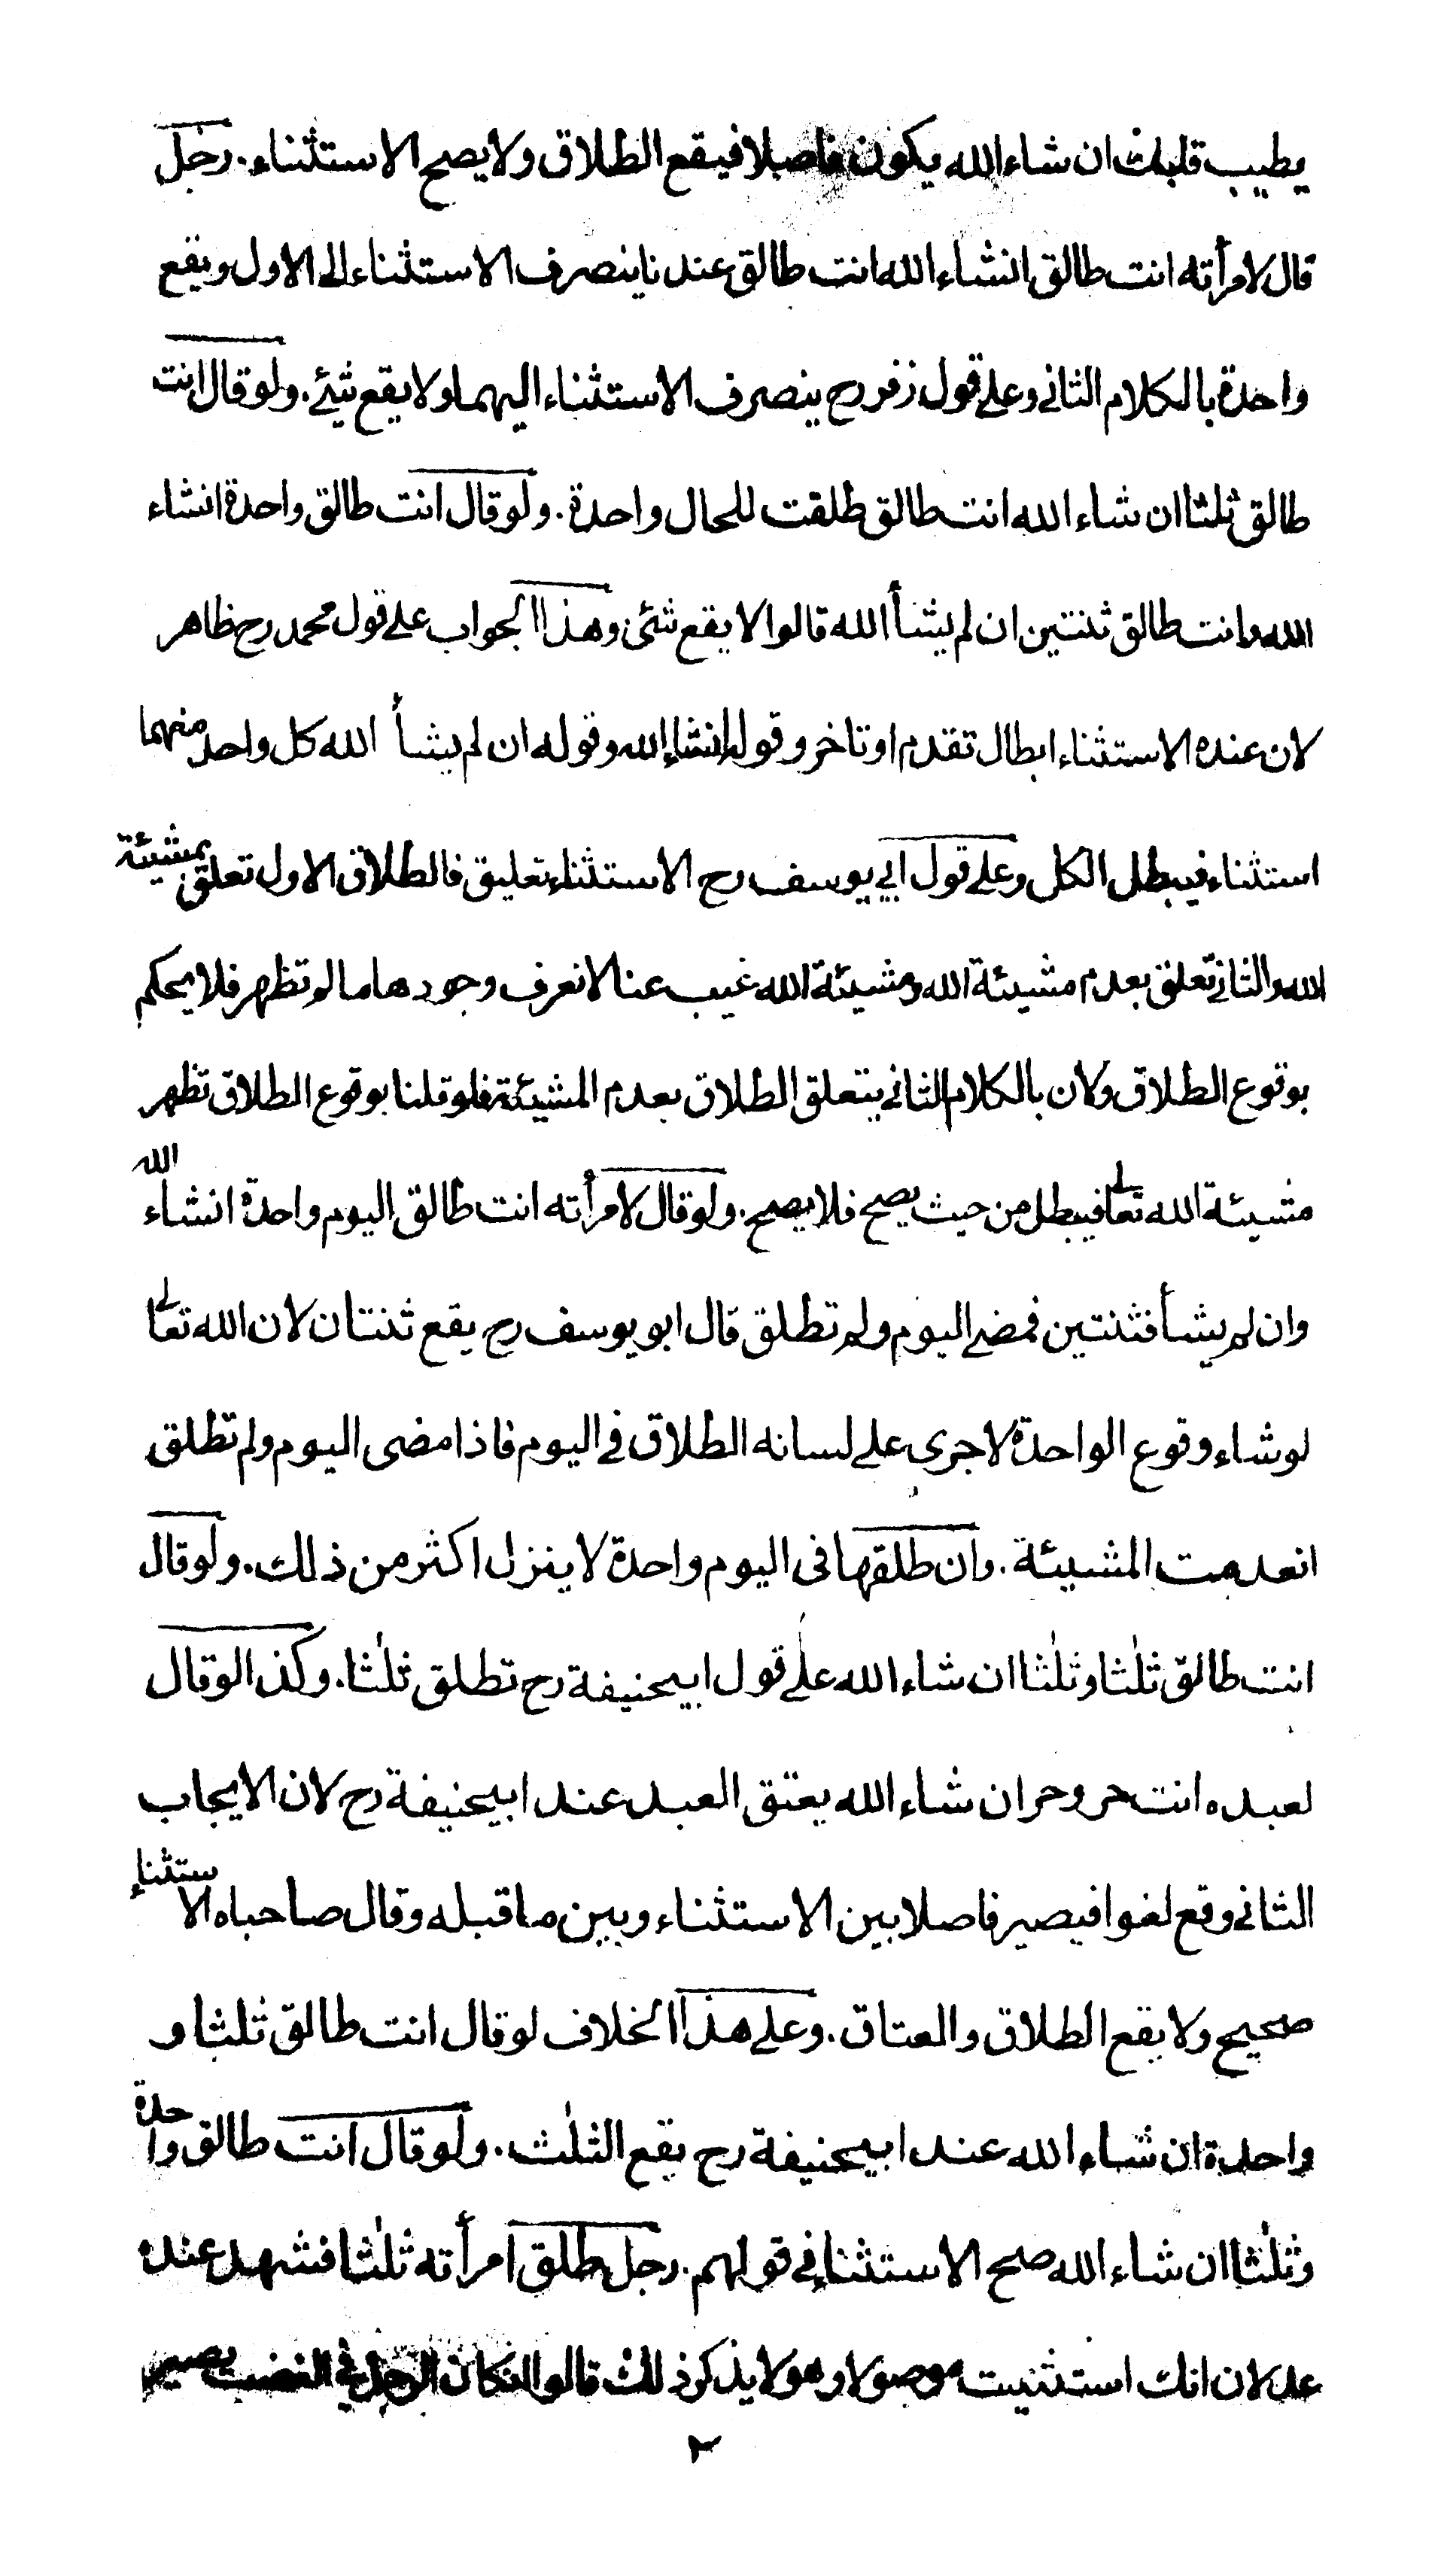 يطيب قلبك ان شاء الله يكون فاصلا فيقع الطلاق ولا يصح الاستثناء . رجل
قال لامرأته انت طالق انشاء الله انت طالق عندنا ينصرف الاستثناء الى الاول ويقع
واحدة بالكلام الثاني وعلى قول زفر رح ينصرف الاستثناء اليهما ولا يقع شئ . ولو قال انت
طالق ثلثا ان شاء الله انت طالق طلقت للحال واحدة . ولو قال انت طالق واحدة انشاء
الله وانت طالق ثنتين ان لم يشأ الله قالوا لا يقع شئ وهذا الجواب على قول محمد رح ظاهر
لان عنده الاستثناء ابطال تقدم او تاخر وقوله انشاء الله وقوله ان لم يشأ الله كل واحد منهما
استثناء فيبطل الكل وعلى قول ابي يوسف رح الاستثناء تعليق فالطلاق الاول تعلق بمشيئة
الله والثاني تعلق بعدم مشيئة الله ومشيئة الله غيب عنا لا نعرف وجودها ما لم تظهر فلا يحكم
بوقوع الطلاق ولان بالكلام الثاني يتعلق الطلاق بعدم المشيئة فلو قلنا بوقوع الطلاق تظهر
مشيئة الله تعالى فيبطل من حيث يصح فلا يصح . ولو قال لامرأته انت طالق اليوم واحدة انشاء الله
وان لم يشأ فثنتين فمضى اليوم ولم تطلق قال ابو يوسف رح يقع ثنتان لان الله تعالى
لو شاء وقوع الواحدة لاجرى على لسانه الطلاق في اليوم فاذا مضى اليوم ولم تطلق
انعدمت المشيئة . وان طلقها فى اليوم واحدة لا ينزل اكثر من ذلك . ولو قال
انت طالق ثلثا وثلثا ان شاء الله على قول ابيحنيفة رح تطلق ثلثا . وكذا لو قال
لعبده انت حر وحر ان شاء الله يعتق العبد عند ابيحنيفة رح لان الايجاب
الثاني وقع لغوا فيصير فاصلا بين الاستثناء وبين ما قبله وقال صاحباه الاستثناء
صحيح ولا يقع الطلاق والعتاق . وعلى هذا الخلاف لو قال انت طالق ثلثا و
واحدة ان شاء الله عند ابيحنيفة رح يقع الثلث . ولو قال انت طالق واحدة
وثلثا ان شاء الله صح الاستثناء في قولهم . رجل طلق امرأته ثلثا فشهد عنده
عدلان انك استثنيت موصولا وهو لا يذكر ذلك قالوا انكان الرجل في الغضب يصير
٢